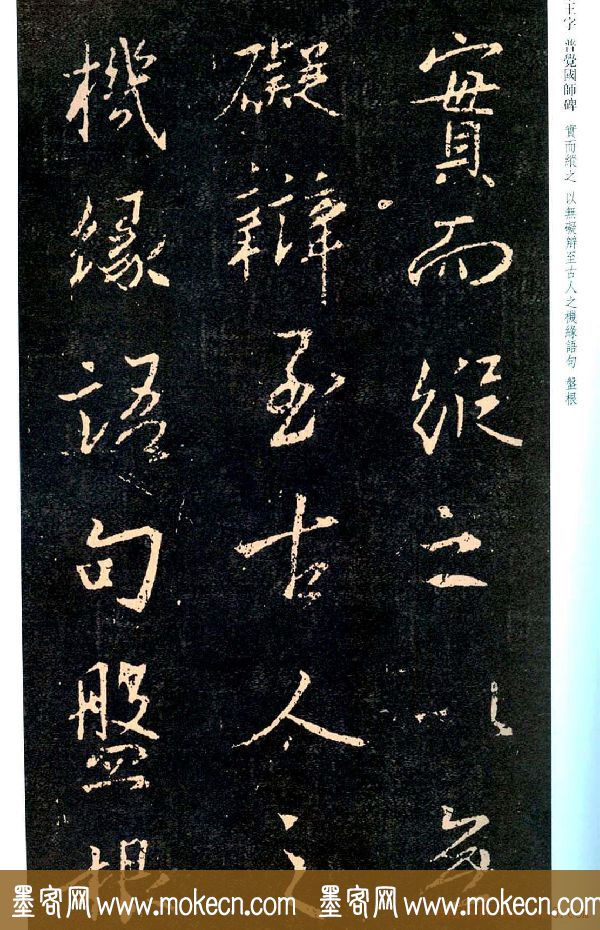 王字 普覺國師碑 實而縱之 以無礙辯至古人之機緣語句 盤根
實而縱之以無
礙辯至古人之
機緣語句盤根
墨客网 www.mokecn.com 墨客网 www.mokecn.com